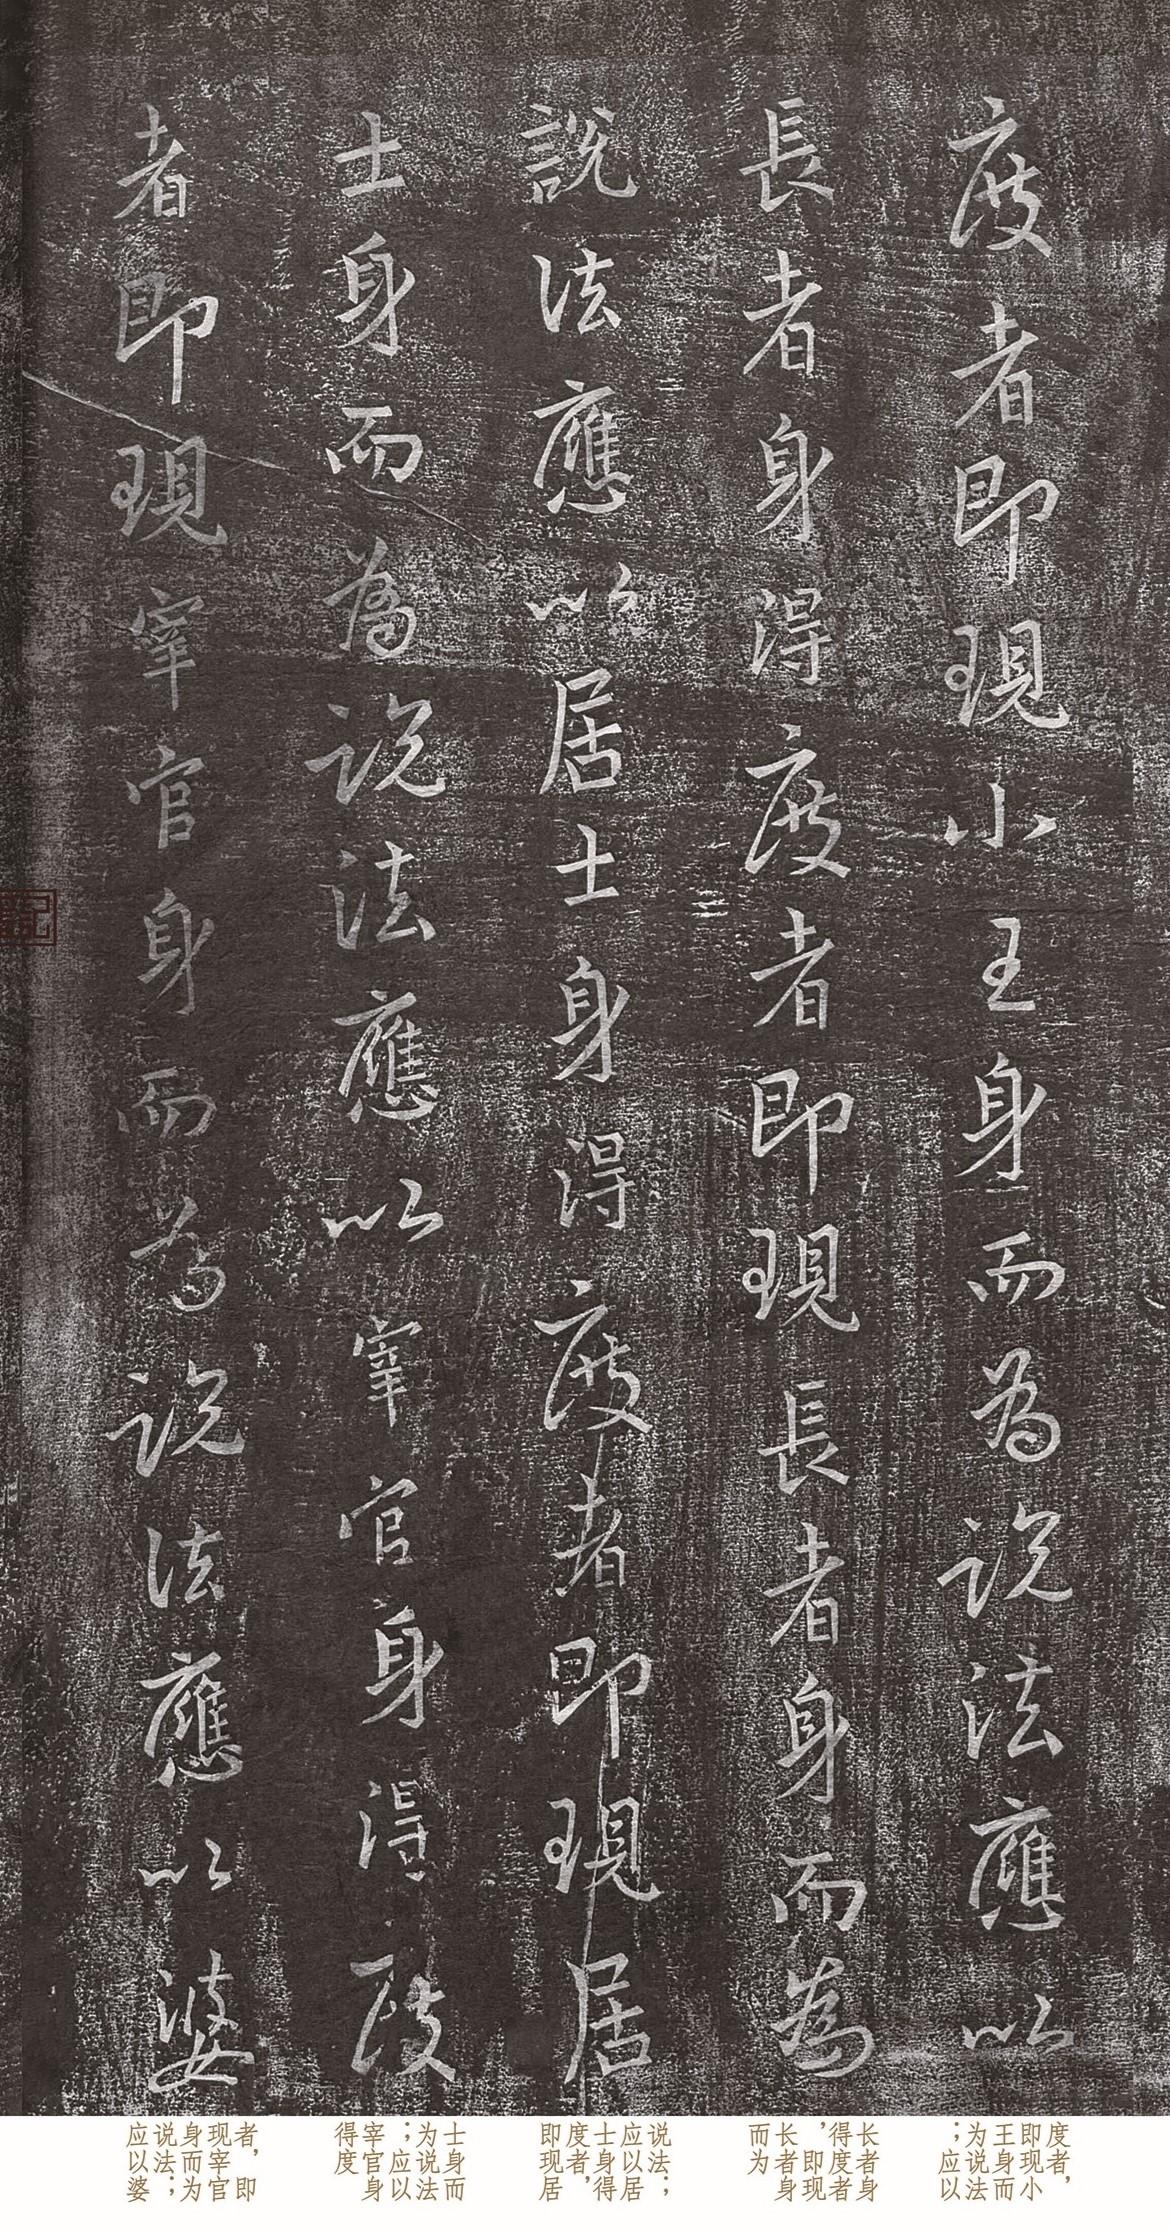 度者即現小王身而為説法應以
長者身得度者即現長者身而為
説法應以居士身得度者即現居
士身而為説法應以宰官身得度
者即現宰官身而為説法應以婆
度者，
即现小
王身而
为说法
；应以
长者身
得度者
，即现
长者身
而为
说法；
应以居
士身得
度者，
即现居
士身而
为说法
；应以
宰官身
得度
者，即
现宰官
身而为
说法；
应以婆